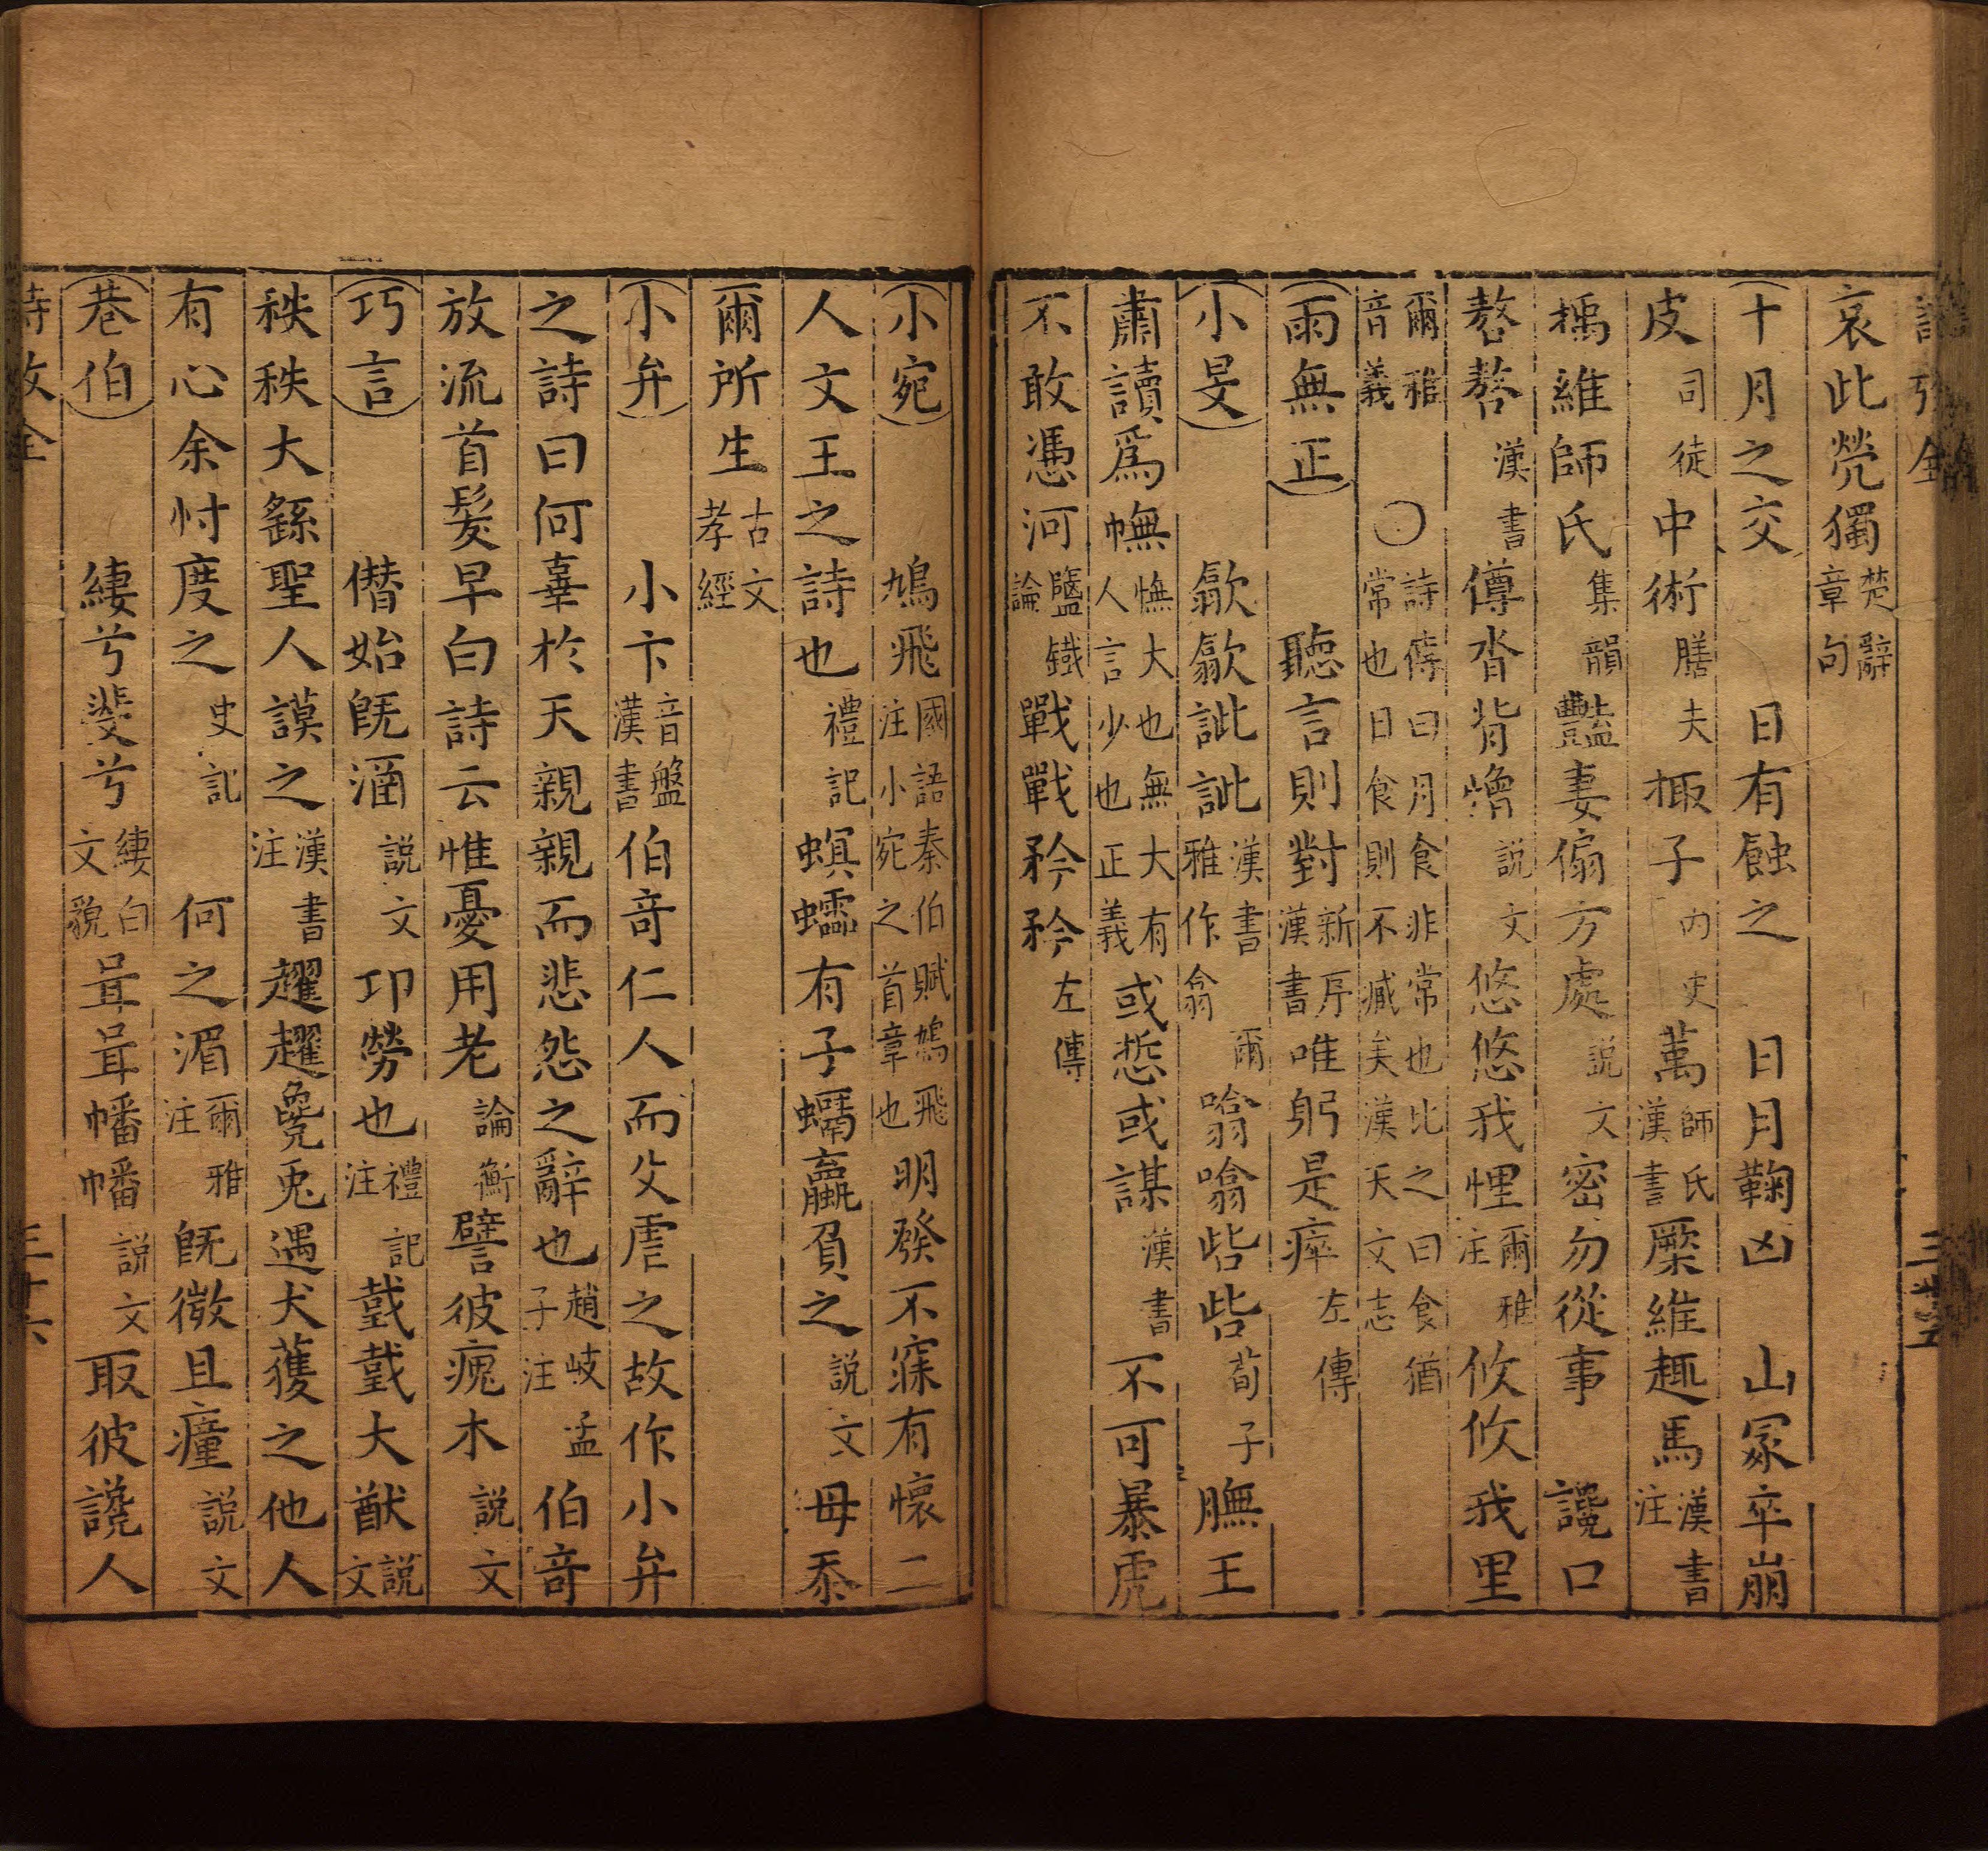 哀此煢獨楚辭章句
十月之交 日有蝕之 日月鞠凶 山冢卒崩
皮司徒中術膳夫掫子內史萬師氏漢書蹷維趣馬漢書注
㯓維師氏集韻豔妻傓方處說文密勿從事 讒口
嗸嗸漢書僔沓背憎說文悠悠我悝爾雅注攸攸我里
爾雅音義 ○詩傳曰月食非常也比之日食猶常也日食則不臧矣漢天文志
雨無正 聽言則對新序漢書唯躬是瘁左傳
小旻 歙歙訿訿漢書爾雅作翕噏噏呰呰荀子膴王
肅讀為幠幠大也無大有人言少也正義或悊或謀漢書 不可暴虎
不敢憑河鹽鐵論戰戰矜矜左傳
小宛 鳩飛國語秦伯賦鳩飛注小宛之首章也明發不寐有懷二
人文王之詩也禮記螟蠕有子蠣蠃負之說文毋忝
爾所生古文孝經
小弁 小卞音盤漢書伯奇仁人而父虐之故作小弁
之詩曰何辜於天親親而悲怨之辭也趙岐孟子注伯奇
放流首髮早白詩云惟憂用老論衡譬彼瘣木說文
巧言 僭始旣涵說文卭勞也禮記注䠧䠧大猷說文
秩秩大繇聖人謨之漢書注趯趯毚兎遇犬獲之他人
有心余忖度之史記 何之湄爾雅注旣微且瘇說文
巷伯 縷兮斐兮縷白文貌咠咠幡幡說文取彼讒人
詩攷全 三十六